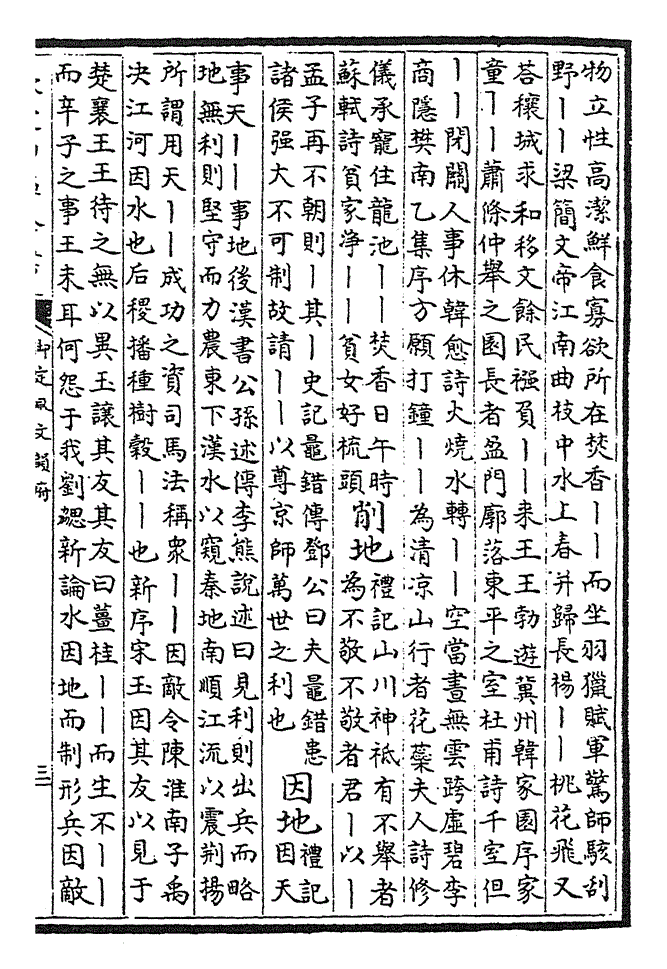 物立性高潔鮮食寡欲所在焚香丨丨而坐羽獵賦軍驚師駭刮
野丨丨梁簡文帝江南曲枝中水上春并歸長楊丨丨桃花飛又
荅穰城求和移文餘民襁負丨丨来王王勃遊冀州韓家園序家
童丨丨蕭條仲舉之園長者盈門廓落東平之室杜甫詩千室但
丨丨閉關人事休韓愈詩火燒水轉丨丨空當晝無雲跨虚碧李
商隱樊南乙集序方願打鐘丨丨為清凉山行者花蘂夫人詩修
儀承寵住龍池丨丨焚香日午時
蘇軾詩貧家浄丨丨貧女好梳頭
削地
禮記山川神祗有不舉者
為不敬不敬者君丨以丨
孟子再不朝則丨其丨史記鼂錯傳鄧公曰夫鼂錯患
諸侯强大不可制故請丨丨以尊京師萬世之利也
因地
禮記
因天
事天丨丨事地後漢書公孫述傳李熊說述曰見利則出兵而略
地無利則堅守而力農東下漢水以窺秦地南順江流以震荆揚
所謂用天丨丨成功之資司馬法稱衆丨丨因敵令陳淮南子禹
决江河因水也后稷播種樹穀丨丨也新序宋玉因其友以見于
楚襄王王待之無以異玉讓其友其友曰薑桂丨丨而生不丨丨
而辛子之事王未耳何怨于我劉勰新論水因地而制形兵因敵
御定佩文韻府
三